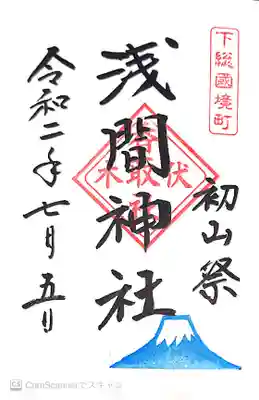 下総國境町
初山祭
浅間神社
令和二年七月五日
CS CamScannerでスキャン